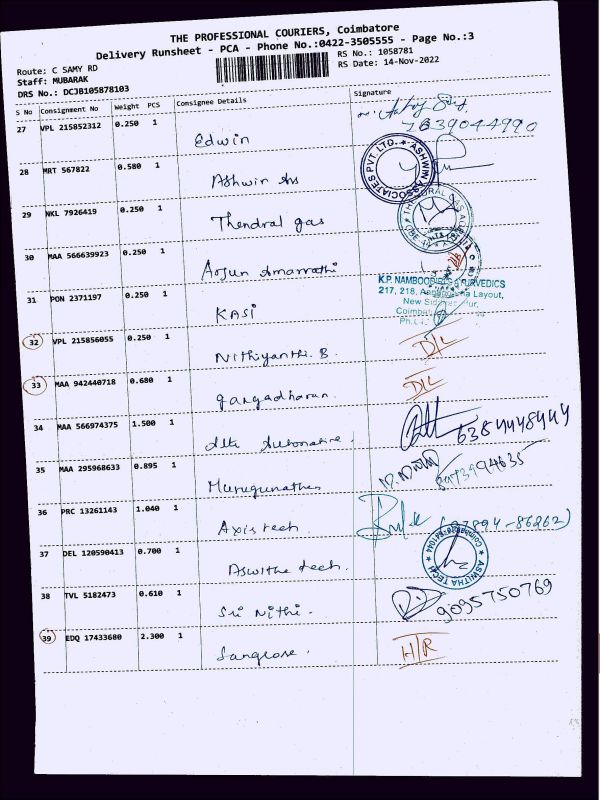 THE PROFESSIONAL COURIERS, Coimbatore
Delivery Runsheet - PCA - Phone No.:0422-3505555 - Page No.:3
Route; C SAMY RD
RS No.: 1058781
Staff: MUBARAK
RS Date: 14-Nov-2022
DRS No.: DCJB105878103
S No Consignment No Weight PCS Consignee Details Signature
27 VPL 215852312 0.250 1 Edwin
28 MRT 567822 0.580 1 Ashwin Ass
ASHWIN ASSOCIATES PVT. LTD.
29 NKL 7926419 0.250 1 Thendral gas
30 MAA 566639923 0.250 1 Arjun Amaravathi
31 PON 2371197 0.250 1 KASI
K.P. NAMBOODIRI'S AYURVEDICS
217, 218, Layout,
New
32 VPL 215856055 0.250 1 Nithiyanthi. B. D/L
33 MAA 942440718 0.680 1 gangadharan D/L
34 MAA 566974375 1.500 1 Automative. 6384448444
35 MAA 295968633 0.895 1 Murugunathan
36 PRC 13261143 1.040 1 Axis tech (97894-86262)
37 DEL 120590413 0.700 1 Aswitha tech.
ASWITHA TECH
38 TVL 5182473 0.610 1 Sri Nithi. 9095750769
39 EDQ 17433680 2.300 1 Sangrose. HTR